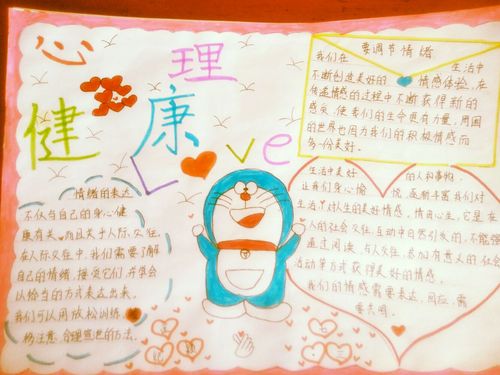 心理
健康
Love
要调节情绪
我们在生活中
不断创造美好的情感体验,在
传递情感的过程中不断获得新的
感受,使我们的生命更有力量,周围
的世界也因为我们的积极情感而
多一份美好。
情绪的表达
不仅与自己的身心健
康有关,而且关乎人际交往。
在人际交往中,我们需要了解
自己的情绪,接受它们,并学会
以恰当的方式表达出来。
我们可以用放松训练,
移注意,合理宣泄的方法。
生活中美好的人和事物,
让我们身心愉悦,逐渐丰富我们对
生活中对人生的美好情感,情由心生,它是在
人的社会交往,互动中自然引发的,不能强
通过阅读,与人交往,参加有意义的社会
活动等方式获得美好的情感。
我们的情感需要表达,回应,需
要共鸣。